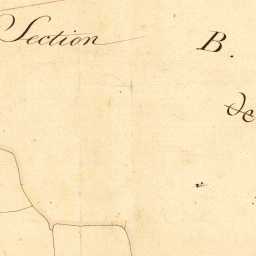 Section B.
de